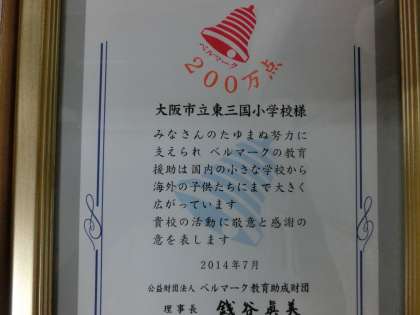 ベルマーク
200万点
大阪市立東三国小学校様
みなさんのたゆまぬ努力に
支えられ ベルマークの教育
援助は国内の小さな学校から
海外の子供たちにまで大きく
広がっています
貴校の活動に敬意と感謝の
意を表します
2014年7月
公益財団法人 ベルマーク教育助成財団
理事長 銭谷眞美